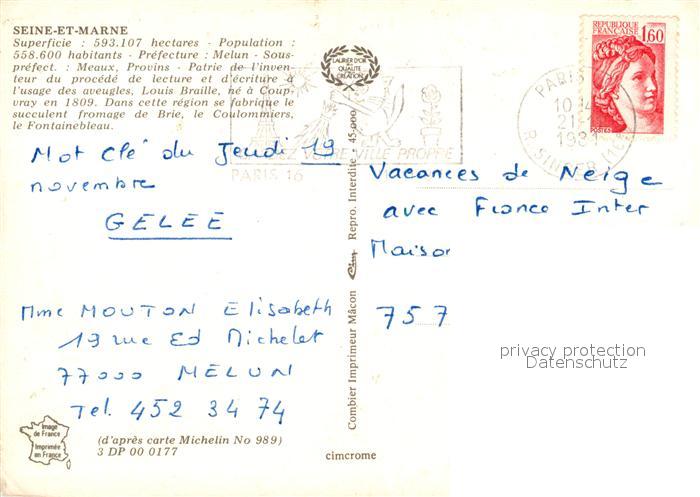 SEINE-ET-MARNE
Superficie : 593.107 hectares - Population :
558.600 habitants - Préfecture : Melun - Sous-
préfect. : Meaux, Provins - Patrie de l'inven-
teur du procédé de lecture et d'écriture à
l'usage des aveugles, Louis Braille, né à Coup-
vray en 1809. Dans cette région se fabrique le
succulent fromage de Brie, le Coulommiers,
le Fontainebleau.
Mot Clé du Jeudi 19
novembre
GELEE
Mme MOUTON Elisabeth
19 rue Ed Michelet
77000 MELUN
Tel. 452 34 74
Image
de France
Imprimée
en France
(d'après carte Michelin No 989)
3 DP 00 0177
LAURIER D'OR
DE
QUALITÉ
CRÉATION
VOTRE VILLE PROPRE
PARIS 16
Combier Imprimeur Mâcon Cim Repro. Interdite - 45-000
cimcrome
REPUBLIQUE
FRANÇAISE
1,60
POSTES
PARIS
21
1981
R. SINGER
Vacances de Neige
avec France Inter
Maison
757
privacy protection
Datenschutz